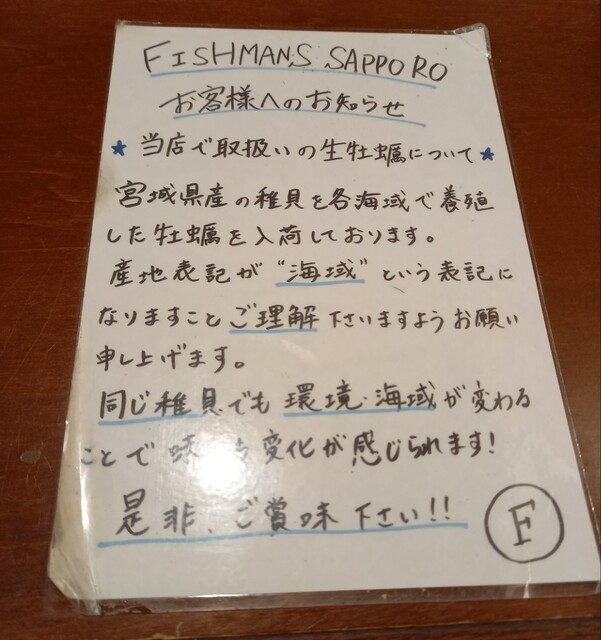 FISHMANS SAPPORO
お客様へのお知らせ
★当店で取扱いの生牡蠣について★
宮城県産の稚貝を各海域で養殖
した牡蠣を入荷しております。
産地表記が"海域"という表記に
なりますことご理解下さいますようお願い
申し上げます。
同じ稚貝でも環境・海域が変わる
ことで 変化が感じられます!
是非、ご賞味下さい!!
F